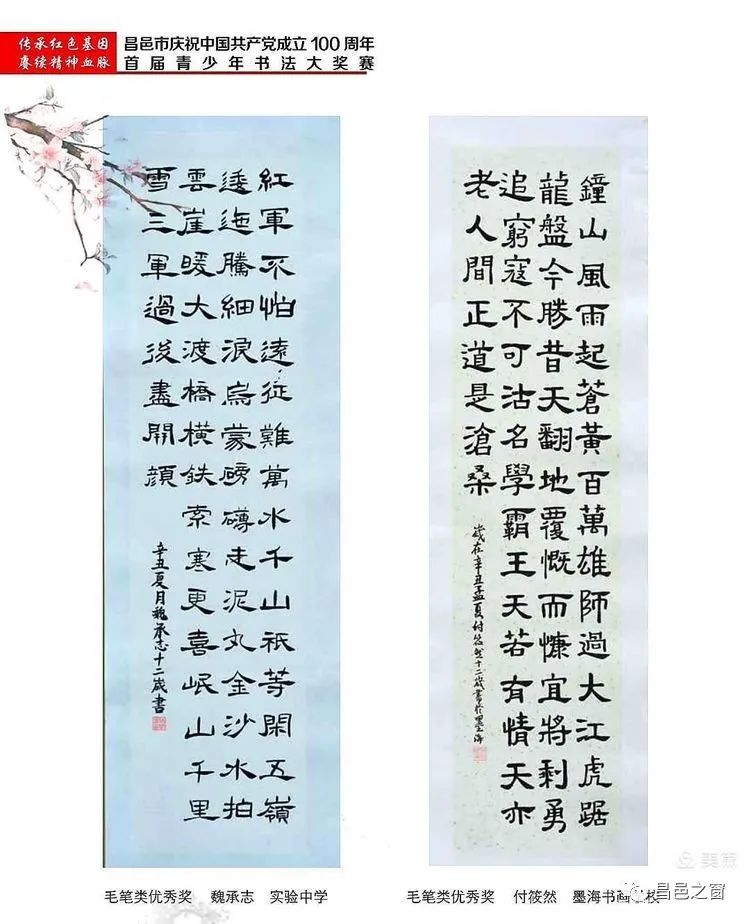 传承红色基因
赓续精神血脉
昌邑市庆祝中国共产党成立100周年
首届青少年书法大奖赛
紅軍不怕遠征難萬水千山祇等閑五嶺
逶迤騰細浪烏蒙磅礴走泥丸金沙水拍
雲崖暖大渡橋橫鉄索寒更喜岷山千里
雪三軍過後盡開顔
辛丑夏月魏承志十二歲書
鐘山風雨起蒼黃百萬雄師過大江虎踞
龍盤今勝昔天翻地覆慨而慷宜將剩勇
追窮寇不可沽名學霸王天若有情天亦
老人間正道是滄桑
歲在辛丑孟夏付筱然十二歲書於墨海
毛笔类优秀奖 魏承志 实验中学
毛笔类优秀奖 付筱然 墨海书画 校
美篇
昌邑之窗